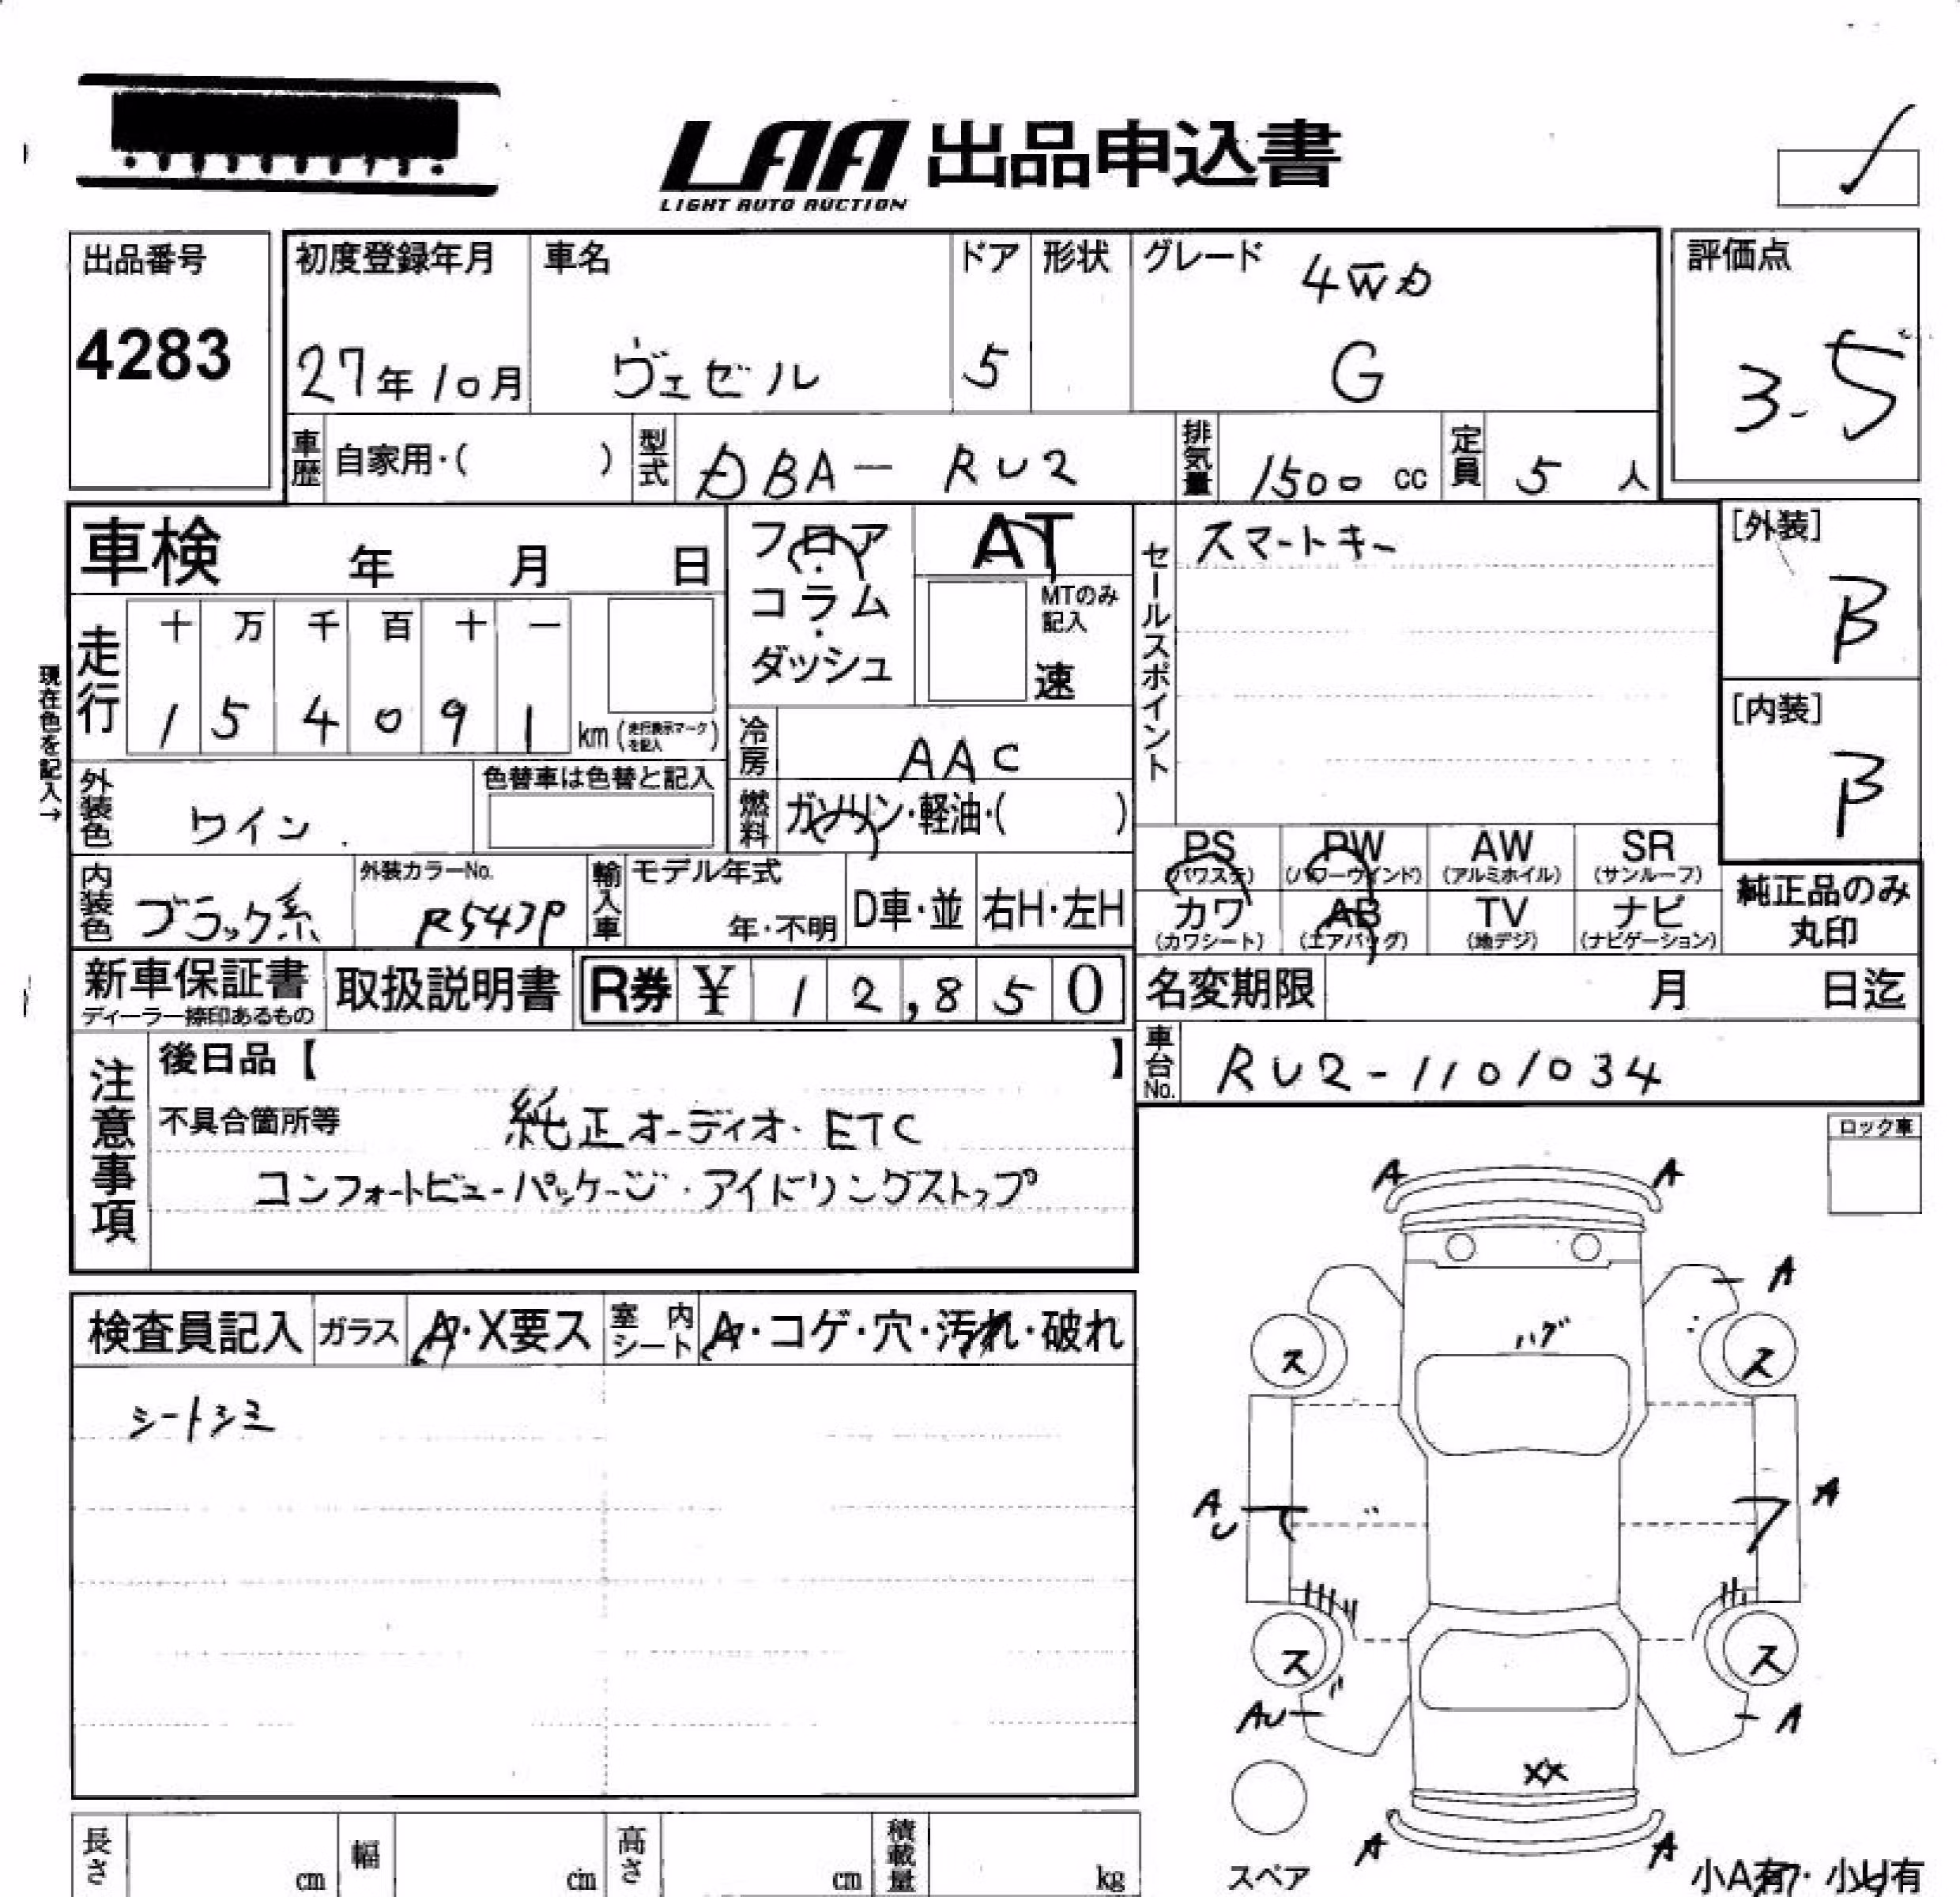 LAA 出品申込書
LIGHT AUTO AUCTION
出品番号
4283
初度登録年月
27年10月
車名
ヴェゼル
ドア
5
形状
グレード
4WD
G
評価点
3.5
車歴 自家用・( )
型式 DBA-RU2
排気量 1500 cc
定員 5 人
車検 年 月 日
現在色を記入→
走行
十 万 千 百 十 一
1 5 4 0 9 1 km (走行表示マークを記入)
フロア・コラム・ダッシュ
AT
MTのみ記入
速
冷房 AAC
燃料 ガソリン・軽油・( )
外装色 ワイン
色替車は色替と記入
内装色 ブラック系
外装カラーNo.
R543P
輸入車 モデル年式
年・不明
D車・並
右H・左H
セールスポイント
スマートキー
[外装]
B
[内装]
B
PS (パワステ)
PW (パワーウインド)
AW (アルミホイル)
SR (サンルーフ)
カワ (カワシート)
AB (エアバッグ)
TV (地デジ)
ナビ (ナビゲーション)
純正品のみ丸印
新車保証書
ディーラー捺印あるもの
取扱説明書
R券 ¥ 1 2,8 5 0
名変期限 月 日迄
車台No. RU2-1101034
注意事項
後日品【 】
不具合箇所等
純正オーディオ・ETC
コンフォートビューパッケージ・アイドリングストップ
ロック車
検査員記入
ガラス A・X要ス
室内シート A・コゲ・穴・汚れ・破れ
シートシミ
A A
A
ハゲ
ス ス
A
U
A
ス ス
AU
A
XX
A A
スペア
小A有・小U有
長さ cm
幅 cm
高さ cm
積載量 kg